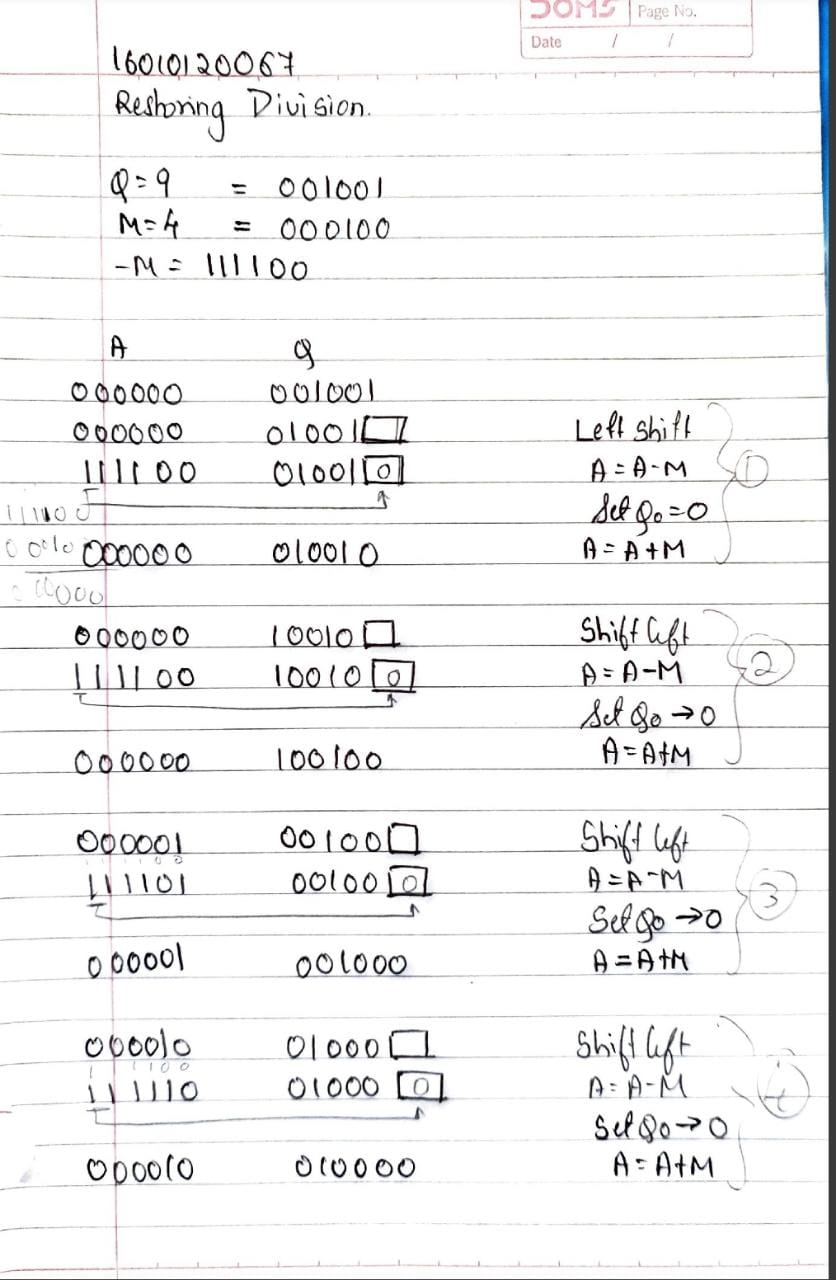 SOMS Page No.
Date / /
16010120067
Restoring Division.
Q=9 = 001001
M=4 = 000100
-M = 111100
A Q
000000 001001
000000 01001 Left Shift
111100 01001 0 A=A-M
111100 Set Q0=0
000000 010010 A=A+M
000000
000000 10010 Shift left
111100 10010 0 A=A-M
Set Q0→0
000000 100100 A=A+M
000001 00100 Shift left
111101 00100 0 A=A-M
Set Q0→0
000001 001000 A=A+M
000010 01000 Shift left
111110 01000 0 A=A-M
Set Q0→0
000010 010000 A=A+M
1
2
3
4